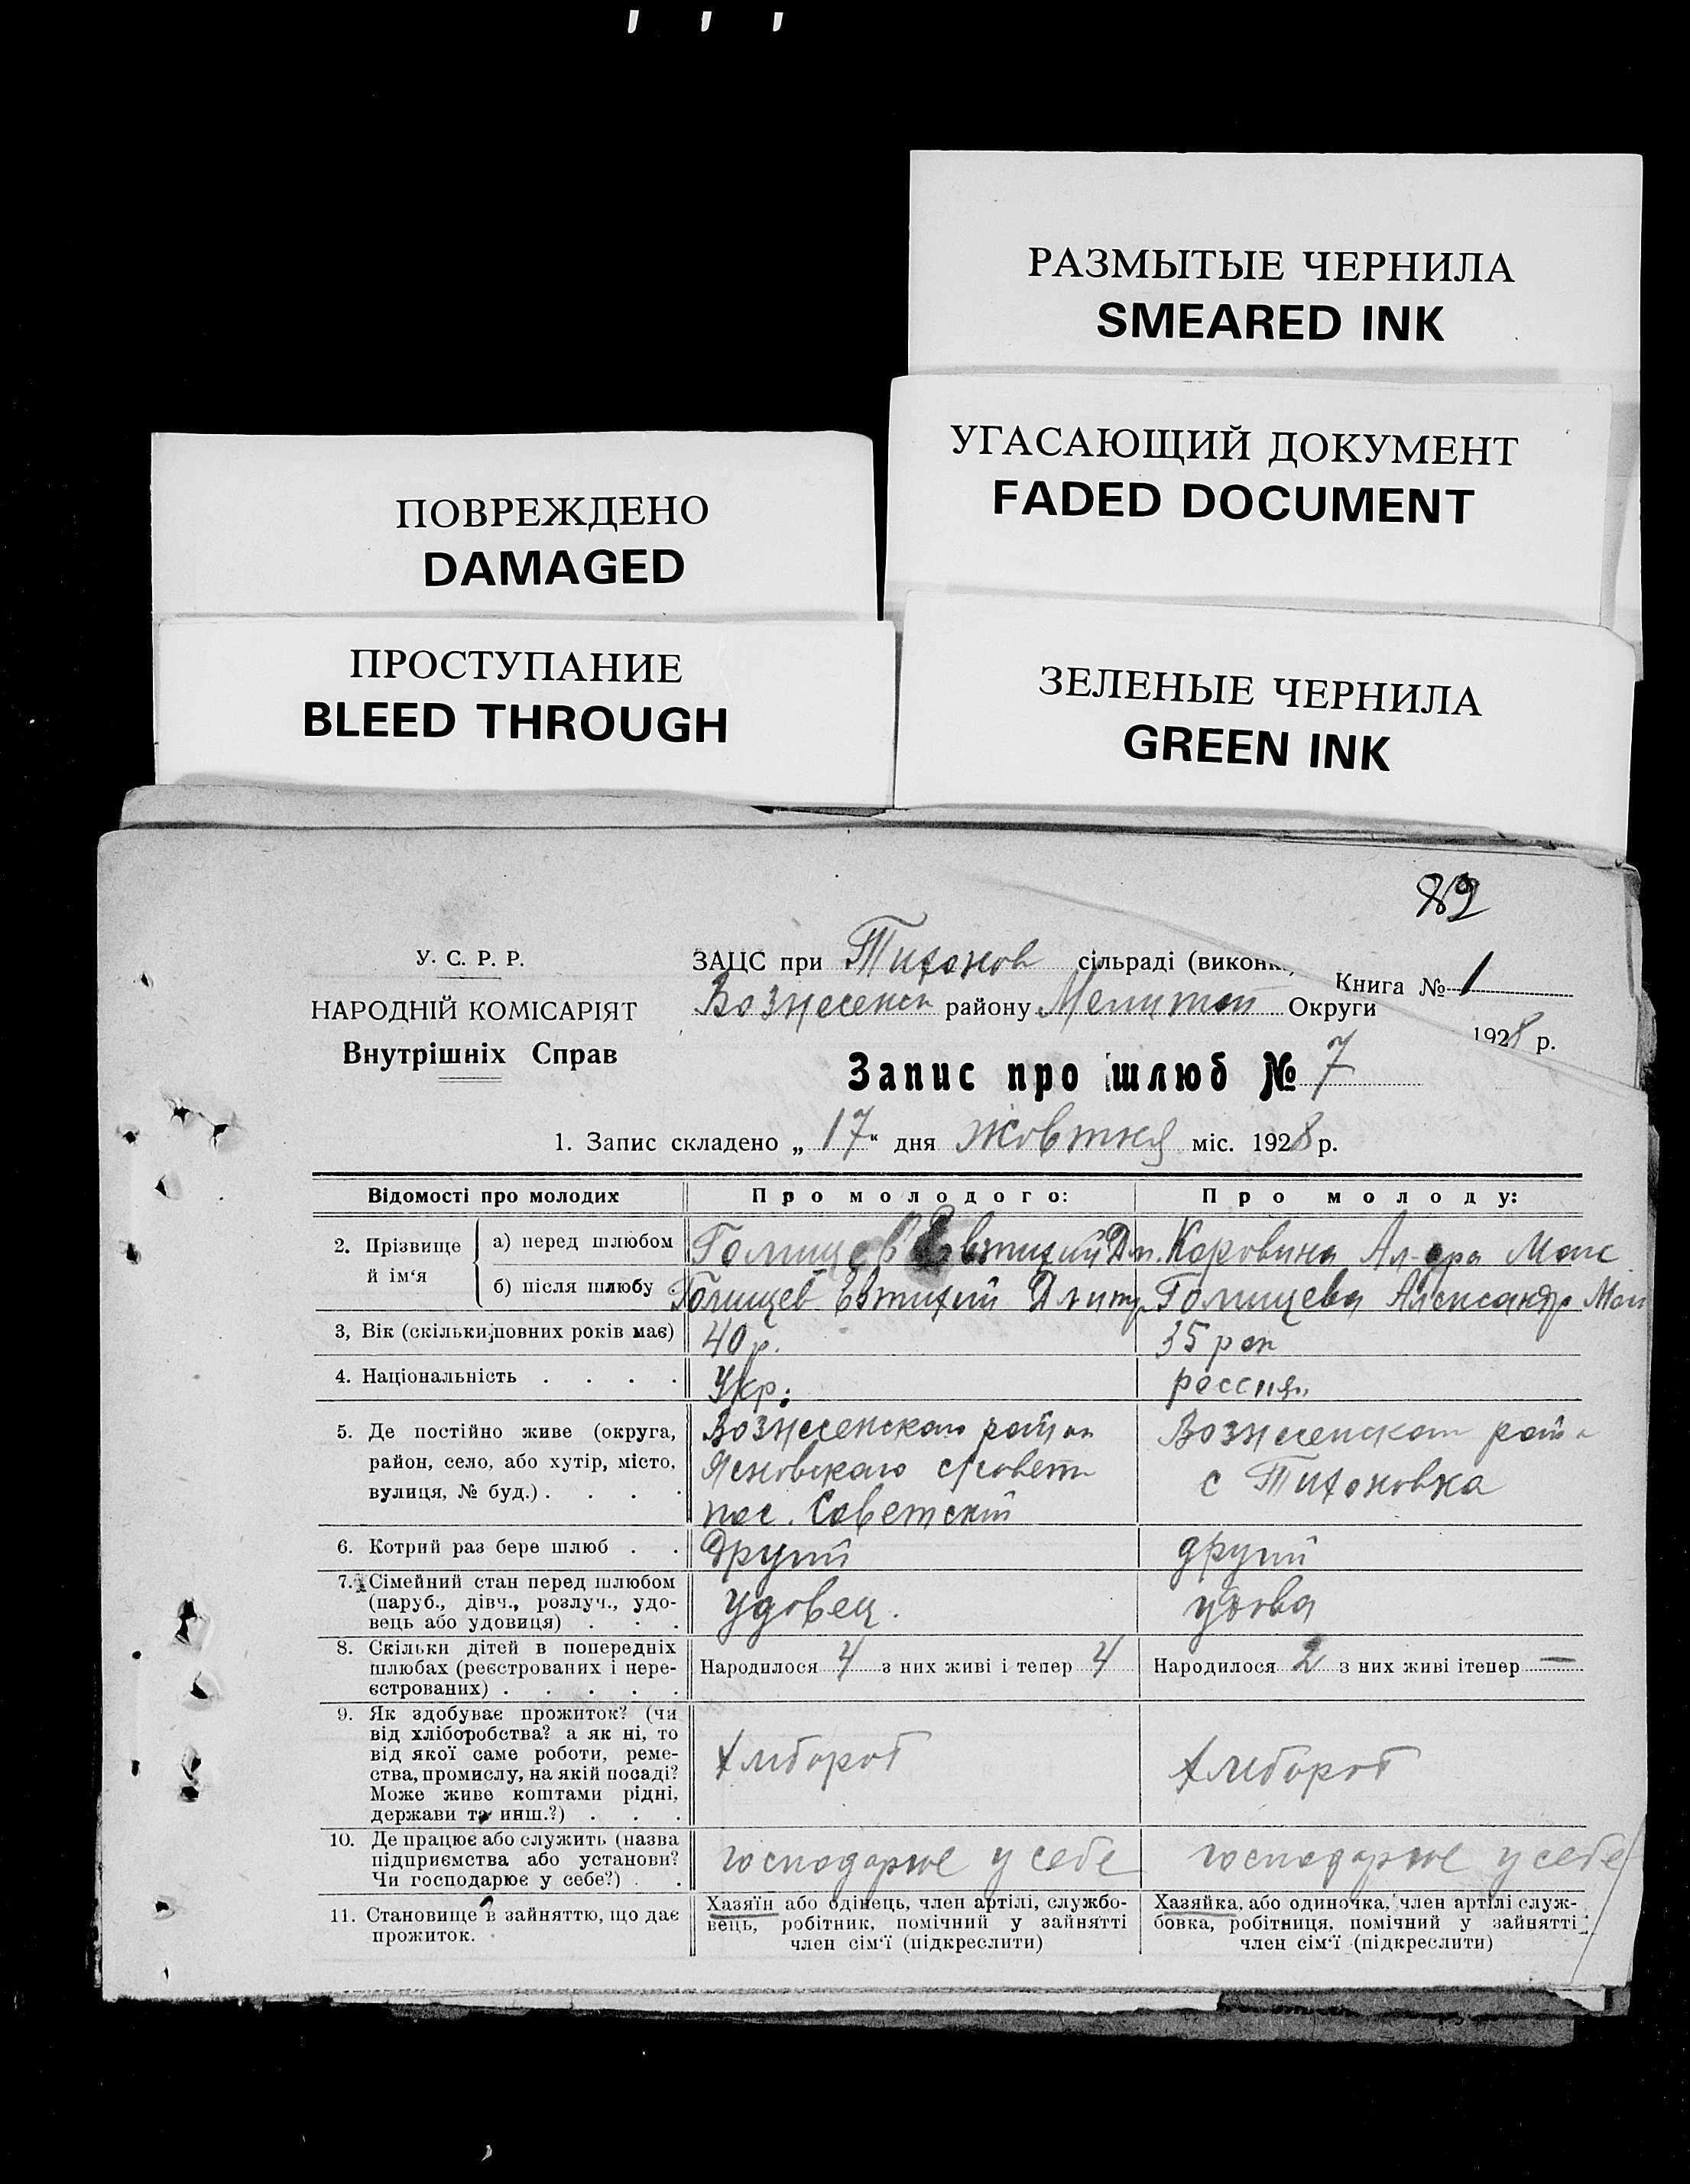 РАЗМЫТЫЕ ЧЕРНИЛА
SMEARED INK
УГАСАЮЩИЙ ДОКУМЕНТ
FADED DOCUMENT
ПОВРЕЖДЕНО
DAMAGED
ПРОСТУПАНИЕ
BLEED THROUGH
ЗЕЛЕНЫЕ ЧЕРНИЛА
GREEN INK
82
У. С. Р. Р.
НАРОДНІЙ КОМІСАРІЯТ
Внутрішніх Справ
ЗАЦС при Тихонов сільраді (виконк
Вознесенск району Мелитоп Округи
Книга № 1
1928 р.
Запис про шлюб № 7
1. Запис складено „17“ дня жовтня міс. 1928 р.
Відомості про молодих Про молодого: Про молоду:
2. Прізвище й ім‘я
а) перед шлюбом Голищев Евтихий Дм. Коровина Ал-дра Моис
б) після шлюбу Голищев Евтихий Дмитр Голищева Александр Мои
3, Вік (скільки повних років має) 40 р. 35 рок
4. Національність . . . . Укр. россия.
5. Де постійно живе (округа, район, село, або хутір, місто, вулиця, № буд.) . . . .
Вознесенского район
Ясновского с/совета
пос. Советский
Вознесенском район
с Тихоновка
6. Котрий раз бере шлюб . . Другий другий
7. Сімейний стан перед шлюбом (паруб., дівч., розлуч., удовець або удовиця) . . . удовец. удова
8. Скільки дітей в попередніх шлюбах (реєстрованих і нереєстрованих) . . . . .
Народилося 4 з них живі і тепер 4 Народилося 2 з них живі ітепер —
9. Як здобуває прожиток? (чи від хліборобства? а як ні, то від якої саме роботи, ремества, промислу, на якій посаді? Може живе коштами рідні, держави та инш.?) . . .
хлібороб хлібороб
10. Де працює або служить (назва підприємства або установи? Чи господарює у себе?) . .
господарює у себе господарює у себе
11. Становище в зайняттю, що дає прожиток.
Хазяїн або одінець, член артілі, службовець, робітник, помічний у зайнятті член сім‘ї (підкреслити)
Хазяйка, або одиночка, член артілі службовка, робітниця, помічний у зайнятті член сім‘ї (підкреслити)